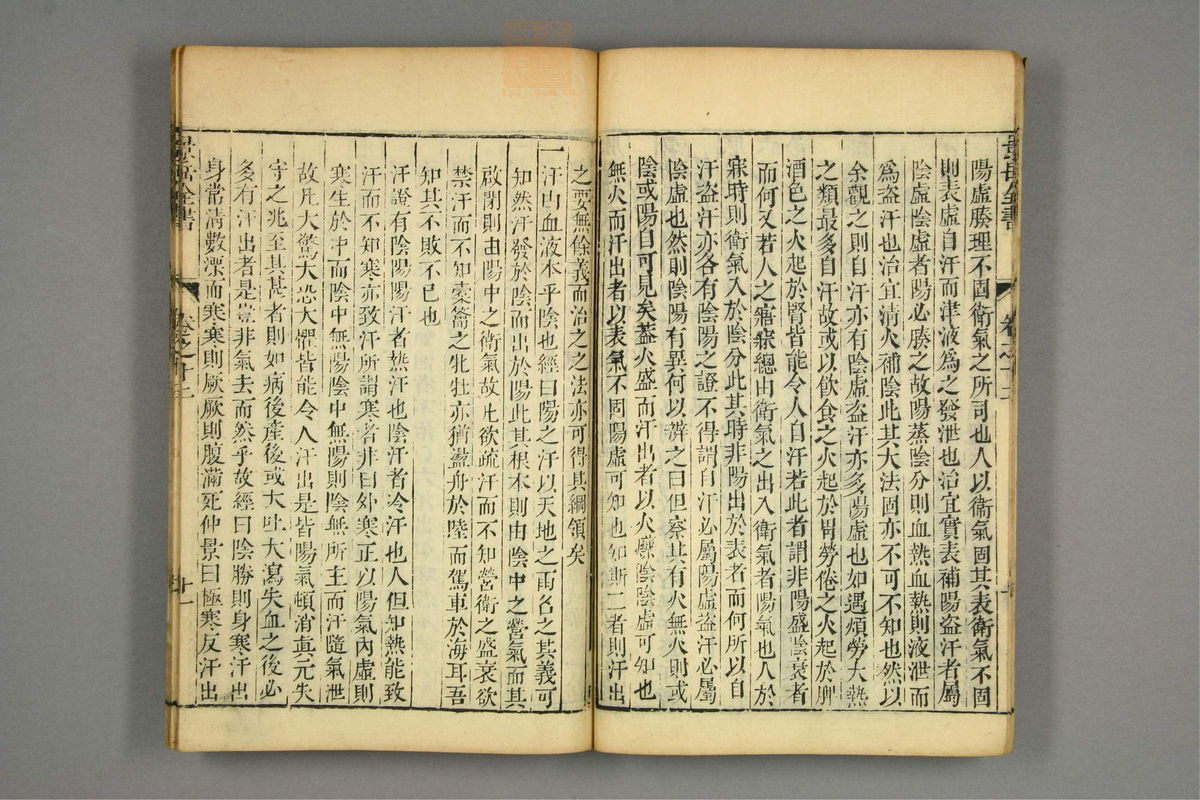 陽虛腠理不固衛氣之所司也人以衛氣固其表衛氣不固
則表虛自汗而津液爲之發泄也治宜實表補陽盜汗者屬
陰虛陰虛者陽必勝之故陽蒸陰分則血熱血熱則液泄而
爲盜汗也治宜清火補陰此其大法固亦不可不知也然以
余觀之則自汗亦有陰虛盜汗亦多陽虛也如遇煩勞大熱
之類最多自汗故或以飲食之火起於胃勞倦之火起於脾
酒色之火起於腎皆能令人自汗若此者謂非陽盛陰衰者
而何又若人之寤寐總由衛氣之出入衛氣者陽氣也人於
寐時則衛氣入於陰分此其時非陽出於表者而何所以自
汗盜汗亦各有陰陽之證不得謂自汗必屬陽虛盜汗必屬
陰虛也然則陰陽有異何以辨之曰但察其有火無火則或
陰或陽自可見矣蓋火盛而汗出者以火爍陰陰虛可知也
無火而汗出者以表氣不固陽虛可知也知斯二者則汗出
之要無餘義而治之之法亦可得其綱領矣
一汗由血液本乎陰也經曰陽之汗以天地之雨名之其義可
知然汗發於陰而出於陽此其根本則由陰中之營氣而其
啟閉則由陽中之衛氣故凡欲疏汗而不知營衛之盛衰欲
禁汗而不知橐籥之牝牡亦猶盪舟於陸而駕車於海耳吾
知其不敗不已也
汗證有陰陽陽汗者熱汗也陰汗者冷汗也人但知熱能致
汗而不知寒亦致汗所謂寒者非曰外寒正以陽氣內虛則
寒生於中而陰中無陽陰中無陽則陰無所主而汗隨氣泄
故凡大驚大恐大懼皆能令人汗出是皆陽氣頓消真元失
守之兆至其甚者則如病後產後或大吐大瀉失血之後必
多有汗出者是豈非氣去而然乎故經曰陰勝則身寒汗出
身常清數溧而寒寒則厥厥則腹滿死仲景曰極寒反汗出
景岳全書
卷之十二
廿一
景岳全書
卷之十二